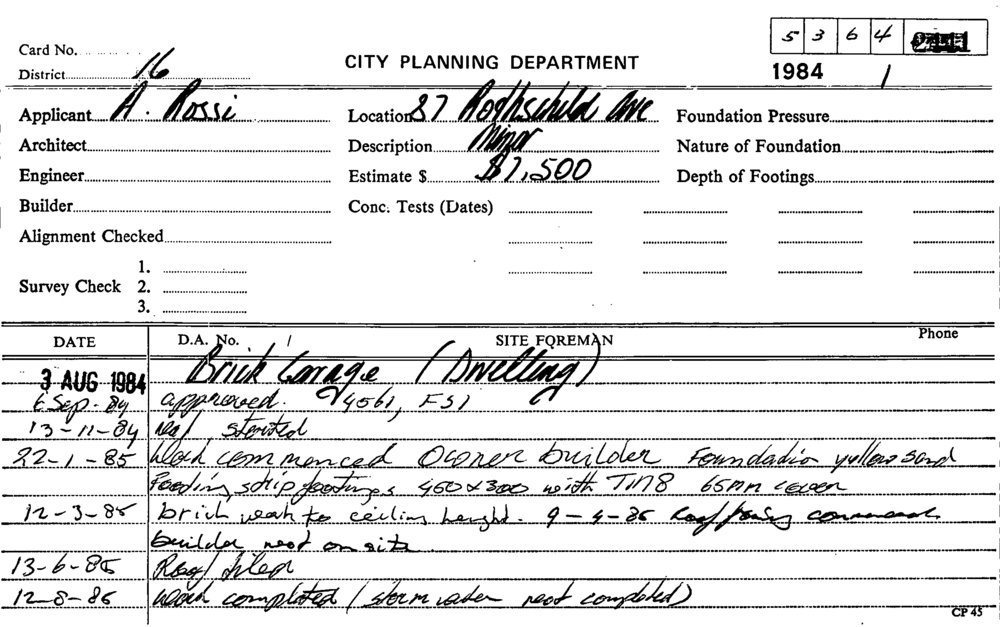 5 3 6 4
Card No.
District 16
CITY PLANNING DEPARTMENT
1984 /
Applicant A. Rossi
Location 87 Rothschild Ave
Foundation Pressure
Architect
Description Minor
Nature of Foundation
Engineer
Estimate $ $7,500
Depth of Footings
Builder
Conc. Tests (Dates)
Alignment Checked
1.
Survey Check 2.
3.
DATE D.A. No. / SITE FOREMAN Phone
Brick Garage (Dwelling)
3 AUG 1984
6 Sep. 84 approved. 4561, FSI
13-11-84 not started
22-1-85 Work commenced Owner builder Foundation yellow sand
Footing strip footings 450x300 with TM8 65mm cover
12-3-85 brick work to ceiling height. 9-4-85 Roof framing commenced
builder not on site
13-6-85 Roof tiled
12-8-85 Work completed (storm water not completed)
CP 45